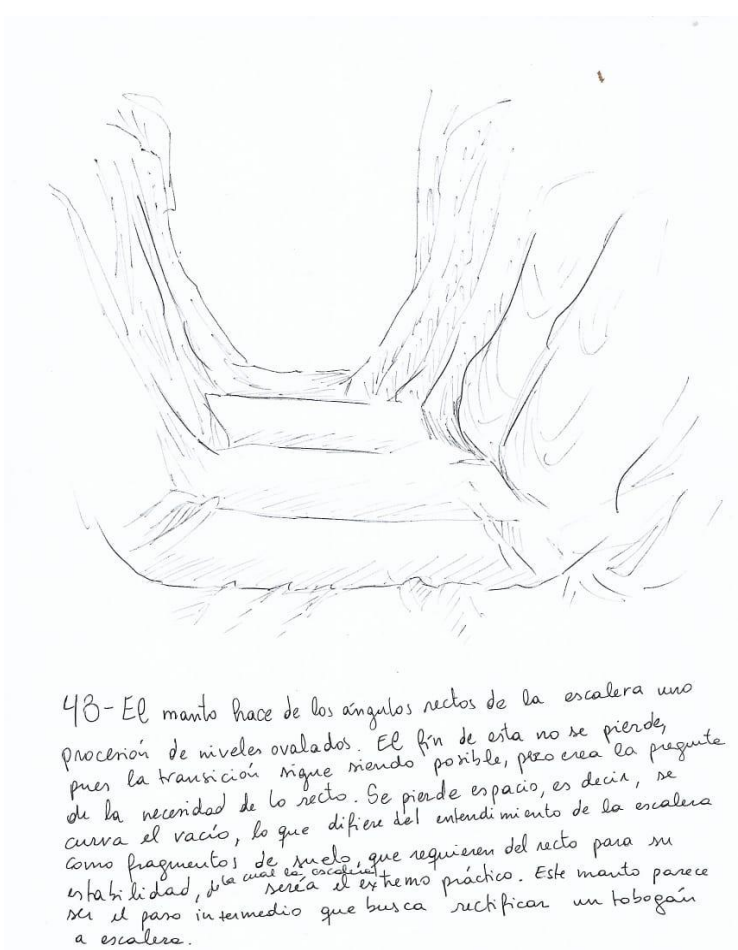 43- El manto hace de los ángulos rectos de la escalera uno
procesión de niveles ovalados. El fin de esta no se pierde,
pues la transición sigue siendo posible, pero crea la pregunta
de la necesidad de lo recto. Se pierde espacio, es decir, se
curva el vacío, lo que difiere del entendimiento de la escalera
como fragmentos de suelo, que requieren del recto para su
estabilidad, de la cual la escalera sería el extremo práctico. Este manto parece
ser el paso intermedio que busca rectificar un tobogán
a escalera.